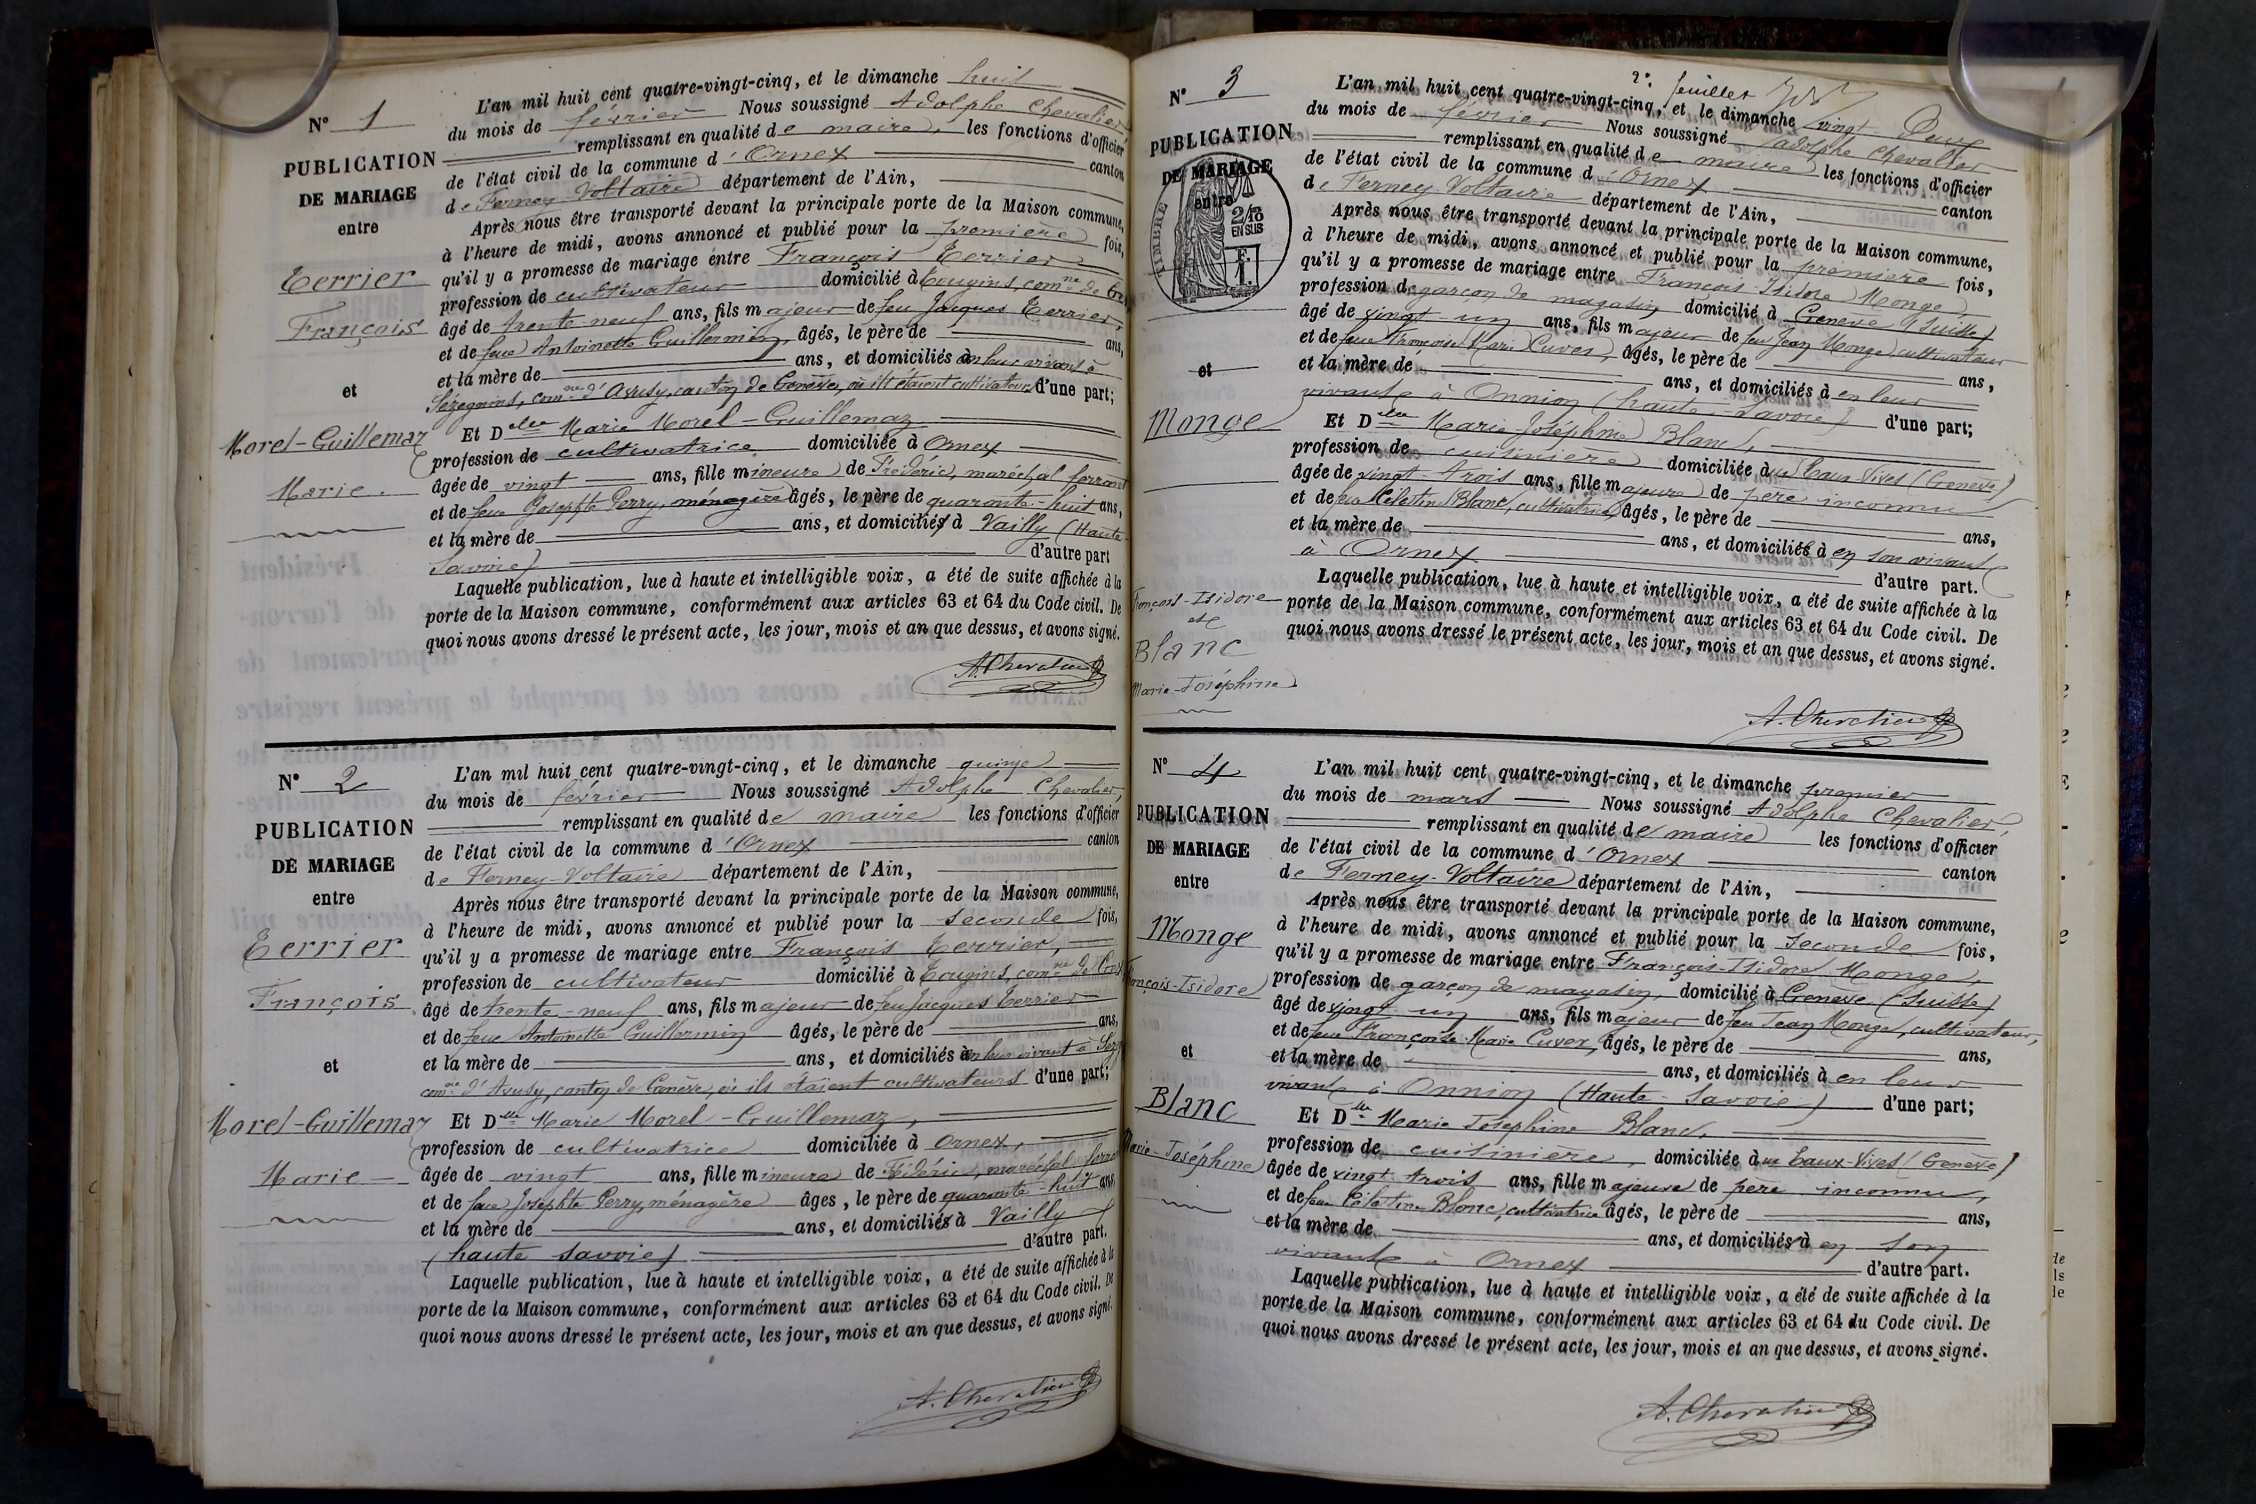 N° 1
PUBLICATION
DE MARIAGE
entre
Terrier
François
et
Morel-Guillemaz
Marie.
L'an mil huit cent quatre-vingt-cinq, et le dimanche huit
du mois de février Nous soussigné Adolphe Chevalier
remplissant en qualité de maire, les fonctions d'officier
de l'état civil de la commune d'Ornex canton
de Ferney-Voltaire département de l'Ain,
Après nous être transporté devant la principale porte de la Maison commune,
à l'heure de midi, avons annoncé et publié pour la première fois,
qu'il y a promesse de mariage entre François Terrier
profession de cultivateur domicilié à Cougins, comne de
âgé de trente-neuf ans, fils majeur de feu Jacques Terrier,
et de feue Antoinette Guillermin, âgés, le père de ans,
et la mère de ans, et domiciliés en leur vivant à
Sézegnins, comne d'Avusy, canton de Genève, où ils étaient cultivateurs d'une part;
Et Dlle Marie Morel-Guillemaz
profession de cultivatrice domiciliée à Ornex
âgée de vingt ans, fille mineure de Frédéric, maréchal ferrant
et de feue Josephte Perry, ménagère âgés, le père de quarante-huit ans,
et la mère de ans, et domiciliés à Vailly (Haute-
Savoie) d'autre part
Laquelle publication, lue à haute et intelligible voix, a été de suite affichée à la
porte de la Maison commune, conformément aux articles 63 et 64 du Code civil. De
quoi nous avons dressé le présent acte, les jour, mois et an que dessus, et avons signé.
A. Chevalier
N° 2
PUBLICATION
DE MARIAGE
entre
Terrier
François
et
Morel-Guillemaz
Marie
L'an mil huit cent quatre-vingt-cinq, et le dimanche quinze
du mois de février Nous soussigné Adolphe Chevalier,
remplissant en qualité de maire les fonctions d'officier
de l'état civil de la commune d'Ornex canton
de Ferney-Voltaire département de l'Ain,
Après nous être transporté devant la principale porte de la Maison commune,
à l'heure de midi, avons annoncé et publié pour la seconde fois,
qu'il y a promesse de mariage entre François Terrier,
profession de cultivateur domicilié à Cougins, comne de
âgé de trente-neuf ans, fils majeur de feu Jacques Terrier
et de feue Antoinette Guillermin âgés, le père de ans,
et la mère de ans, et domiciliés en leur vivant à
comne d'Avusy, canton de Genève, où ils étaient cultivateurs d'une part;
Et Dlle Marie Morel-Guillemaz,
profession de cultivatrice domiciliée à Ornex,
âgée de vingt ans, fille mineure de Fédéric, maréchal ferrant
et de feue Josephte Perry, ménagère âges, le père de quarante-huit ans,
et la mère de ans, et domiciliés à Vailly
(haute savoie) d'autre part.
Laquelle publication, lue à haute et intelligible voix, a été de suite affichée à la
porte de la Maison commune, conformément aux articles 63 et 64 du Code civil. De
quoi nous avons dressé le présent acte, les jour, mois et an que dessus, et avons signé.
A. Chevalier
2e feuillet
N° 3
PUBLICATION
DE MARIAGE
entre
TIMBRE
2/10
EN SUS
et
Monge
François-Isidore
et
Blanc
Marie-Joséphine
L'an mil huit cent quatre-vingt-cinq, et le dimanche vingt-Deux
du mois de février Nous soussigné adolphe Chevalier
remplissant en qualité de maire les fonctions d'officier
de l'état civil de la commune d'Ornex canton
de Ferney-Voltaire département de l'Ain,
Après nous être transporté devant la principale porte de la Maison commune,
à l'heure de midi, avons annoncé et publié pour la première fois,
qu'il y a promesse de mariage entre François-Isidore Monge,
profession de garçon de magasin domicilié à Genève (Suisse)
âgé de vingt-un ans, fils majeur de feu Jean Monge, cultivateur
et de feue Françoise Marie Cuvex, âgés, le père de ans,
et la mère de ans, et domiciliés à en leur
vivant à Onnion (haute-Savoie) d'une part;
Et Dlle Marie Joséphine Blanc,
profession de cuisinière domiciliée aux Eaux-Vives (Genève)
âgée de vingt-trois ans, fille majeure de père inconnu
et de feue Célestine Blanc, cultivatrice, âgés, le père de ans,
et la mère de ans, et domiciliés à en son vivant
à Ornex d'autre part.
Laquelle publication, lue à haute et intelligible voix, a été de suite affichée à la
porte de la Maison commune, conformément aux articles 63 et 64 du Code civil. De
quoi nous avons dressé le présent acte, les jour, mois et an que dessus, et avons signé.
A. Chevalier
N° 4
PUBLICATION
DE MARIAGE
entre
Monge
François-Isidore
et
Blanc
Marie-Joséphine
L'an mil huit cent quatre-vingt-cinq, et le dimanche premier
du mois de mars Nous soussigné Adolphe Chevalier,
remplissant en qualité de maire les fonctions d'officier
de l'état civil de la commune d'Ornex canton
de Ferney-Voltaire département de l'Ain,
Après nous être transporté devant la principale porte de la Maison commune,
à l'heure de midi, avons annoncé et publié pour la seconde fois,
qu'il y a promesse de mariage entre François-Isidore Monge,
profession de garçon de magasin, domicilié à Genève (Suisse)
âgé de vingt-un ans, fils majeur de feu Jean Monge, cultivateur,
et de feue Françoise-Marie Cuvex, âgés, le père de ans,
et la mère de ans, et domiciliés à en leur
vivant à Onnion (Haute-Savoie) d'une part;
Et Dlle Marie Josephine Blanc,
profession de cuisinière, domiciliée aux Eaux-Vives (Genève)
âgée de vingt-trois ans, fille majeure de père inconnu,
et de feue Célestine Blanc, cultivatrice âgés, le père de ans,
et la mère de ans, et domiciliés à en son
vivant à Ornex d'autre part.
Laquelle publication, lue à haute et intelligible voix, a été de suite affichée à la
porte de la Maison commune, conformément aux articles 63 et 64 du Code civil. De
quoi nous avons dressé le présent acte, les jour, mois et an que dessus, et avons signé.
A. Chevalier